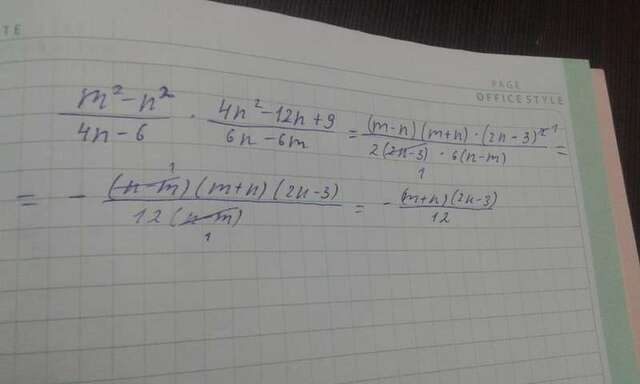 PAGE
OFFICE STYLE
(m² - n²)/(4n - 6) · (4n² - 12n + 9)/(6n - 6m) = ((m - n)(m + n) · (2n - 3)²¹)/(2(2n - 3)₁ · 6(n - m)) =
= - ((n - m)¹(m + n)(2n - 3))/(12(n - m)₁) = - ((m + n)(2n - 3))/12